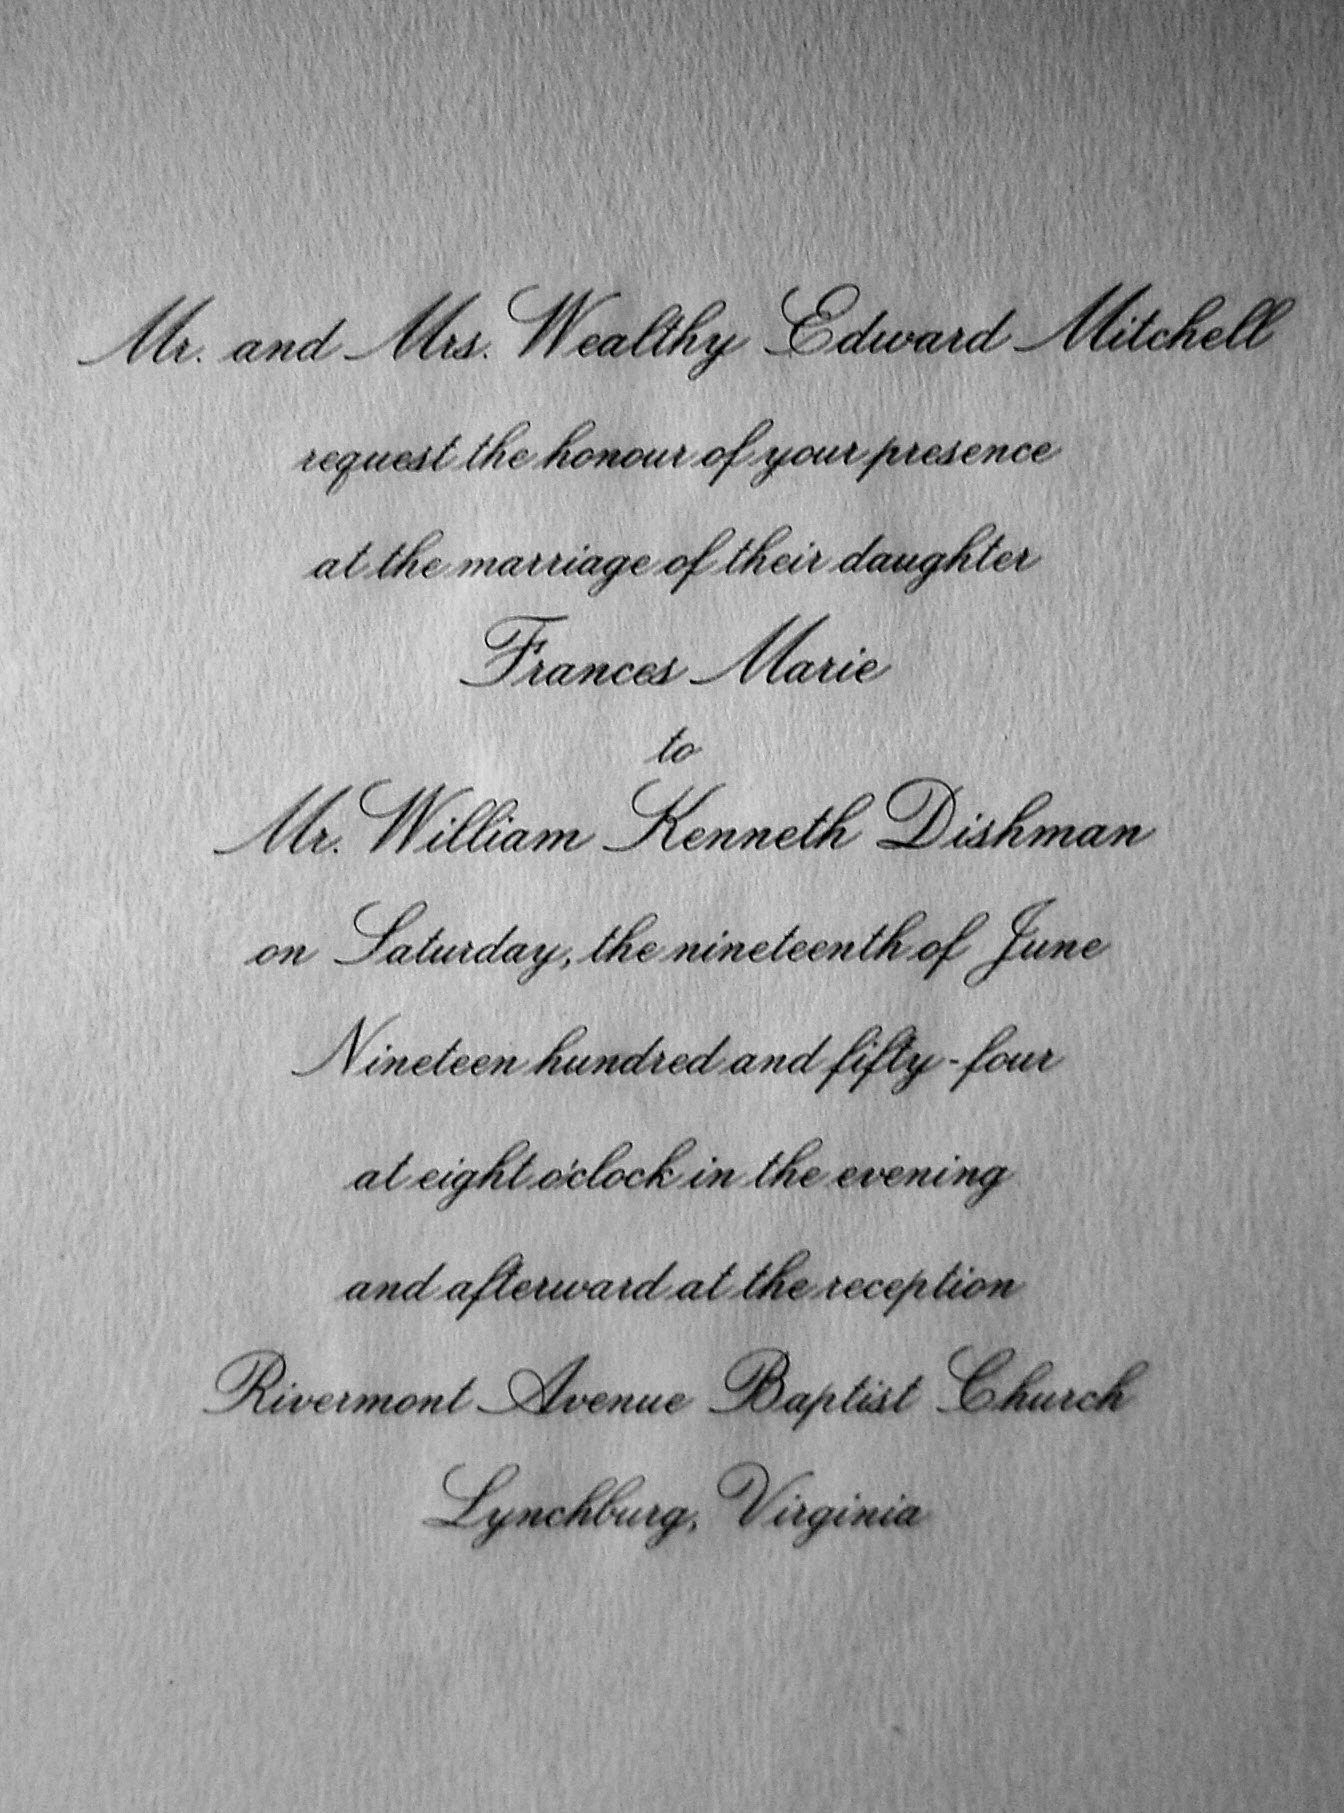 Mr. and Mrs. Wealthy Edward Mitchell
request the honour of your presence
at the marriage of their daughter
Frances Marie
to
Mr. William Kenneth Dishman
on Saturday, the nineteenth of June
Nineteen hundred and fifty-four
at eight o'clock in the evening
and afterward at the reception
Rivermont Avenue Baptist Church
Lynchburg, Virginia